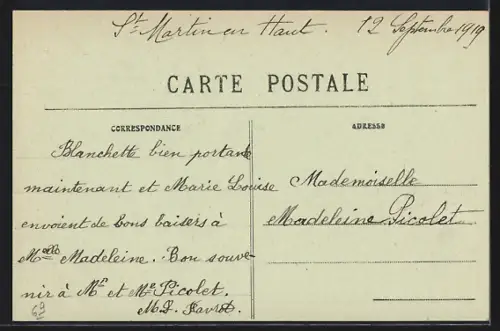 St Martin en Haut. 12 Septembre 1919
CARTE POSTALE
CORRESPONDANCE
ADRESSE
Blanchette bien portante
maintenant et Marie Louise
envoient de bons baisers à
Melle Madeleine. Bon souve-
nir à Mr et Me Picolet.
M. L. Favrot.
Mademoiselle
Madeleine Picolet